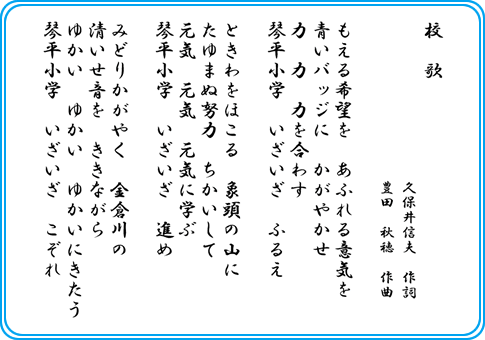 校歌
久保井信夫 作詞
豊田 秋穂 作曲
もえる希望を あふれる意気を
青いバッジに かがやかせ
力 力 力を合わす
琴平小学 いざいざ ふるえ
ときわをほこる 象頭の山に
たゆまぬ努力 ちかいして
元気 元気 元気に学ぶ
琴平小学 いざいざ 進め
みどりかがやく 金倉川の
清いせ音を ききながら
ゆかい ゆかい ゆかいにきたう
琴平小学 いざいざ こぞれ